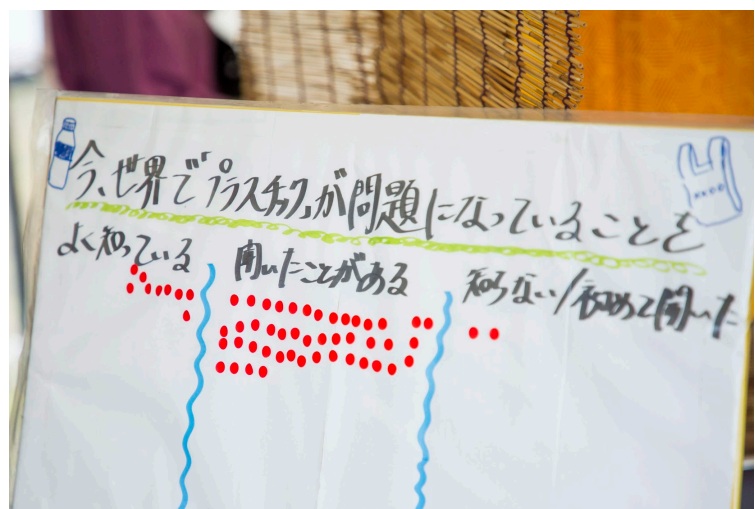 今、世界でプラスチックが問題になっていることを
よく知っている
聞いたことがある
知らない/初めて聞いた